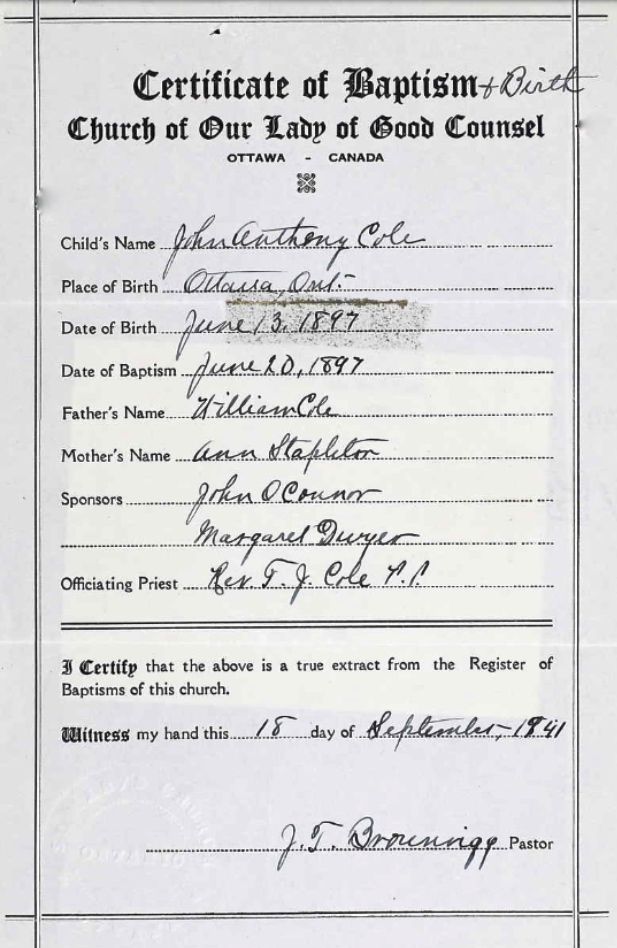 Certificate of Baptism + Birth
Church of Our Lady of Good Counsel
OTTAWA - CANADA
Child's Name John Anthony Cole
Place of Birth Ottawa, Ont.
Date of Birth June 13, 1897
Date of Baptism June 20, 1897
Father's Name William Cole
Mother's Name Ann Stapleton
Sponsors John O Connor
Margaret Dwyer
Officiating Priest Rev. T. J. Cole P.P.
I Certify that the above is a true extract from the Register of
Baptisms of this church.
Witness my hand this 18 day of September, 1941
J. T. Brownrigg Pastor